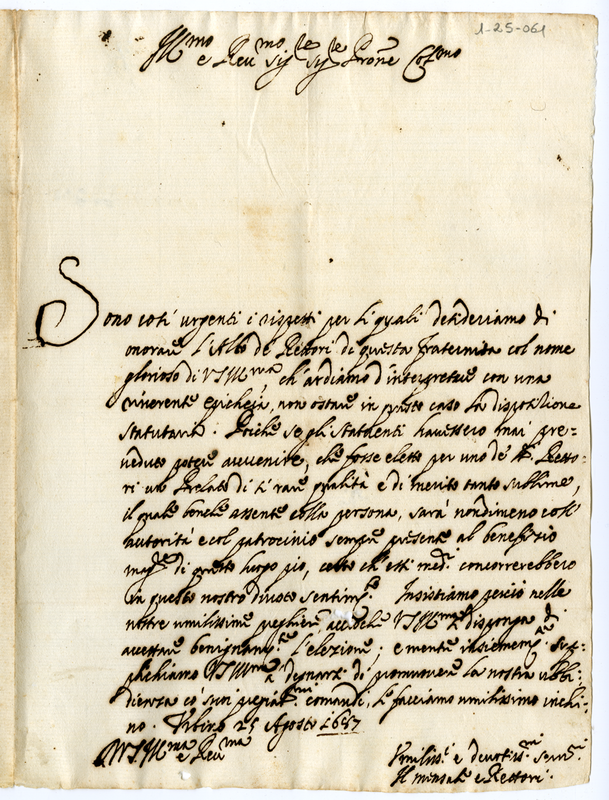 1-25-061
Ill.mo e Reu.mo Sig.re Sig.re Prone Col.mo
Sono così urgenti i rispetti per li quali desideriamo di
onorare l'Albo de Rettori di questa fraternita col nome
glorioso di VS Ill.ma ch'ardiamo d'interpretare con una
riuerente epicheja, non ostare in questo caso la dispositione
statutaria. Poiche se gli statuenti hauessero mai pre=
ueduto potere auuenire, che fosse eletto per uno de Retto=
ri un Prelato di si rare qualità e di merito tanto sublime,
il quale benche assente colla persona, sarà nondimeno coll'
autorità e col patrocinio sempre presente al benefizio
mag.re di questo luogo pio, certo ch'essi med.i concorrerebbero
in questo nostro diuoto sentim.to Insistiamo perciò nelle
nostre umilissime preghiere accioche VS Ill.ma si disponga di
accettare benignam.te l'elezione; e mentre insiememte sup=
plichiamo VS Ill.ma a degnarsi di promouere la nostra ubbi=
dienza co' suoi pregiat.mi comandi, le facciamo umilissimo inchi=
no. Urbino 25 Agosto 1687
DVS Ill.ma e Reu.ma
Umiliss.i e deuotiss.mi seru.i
Il mensale e Rettori.